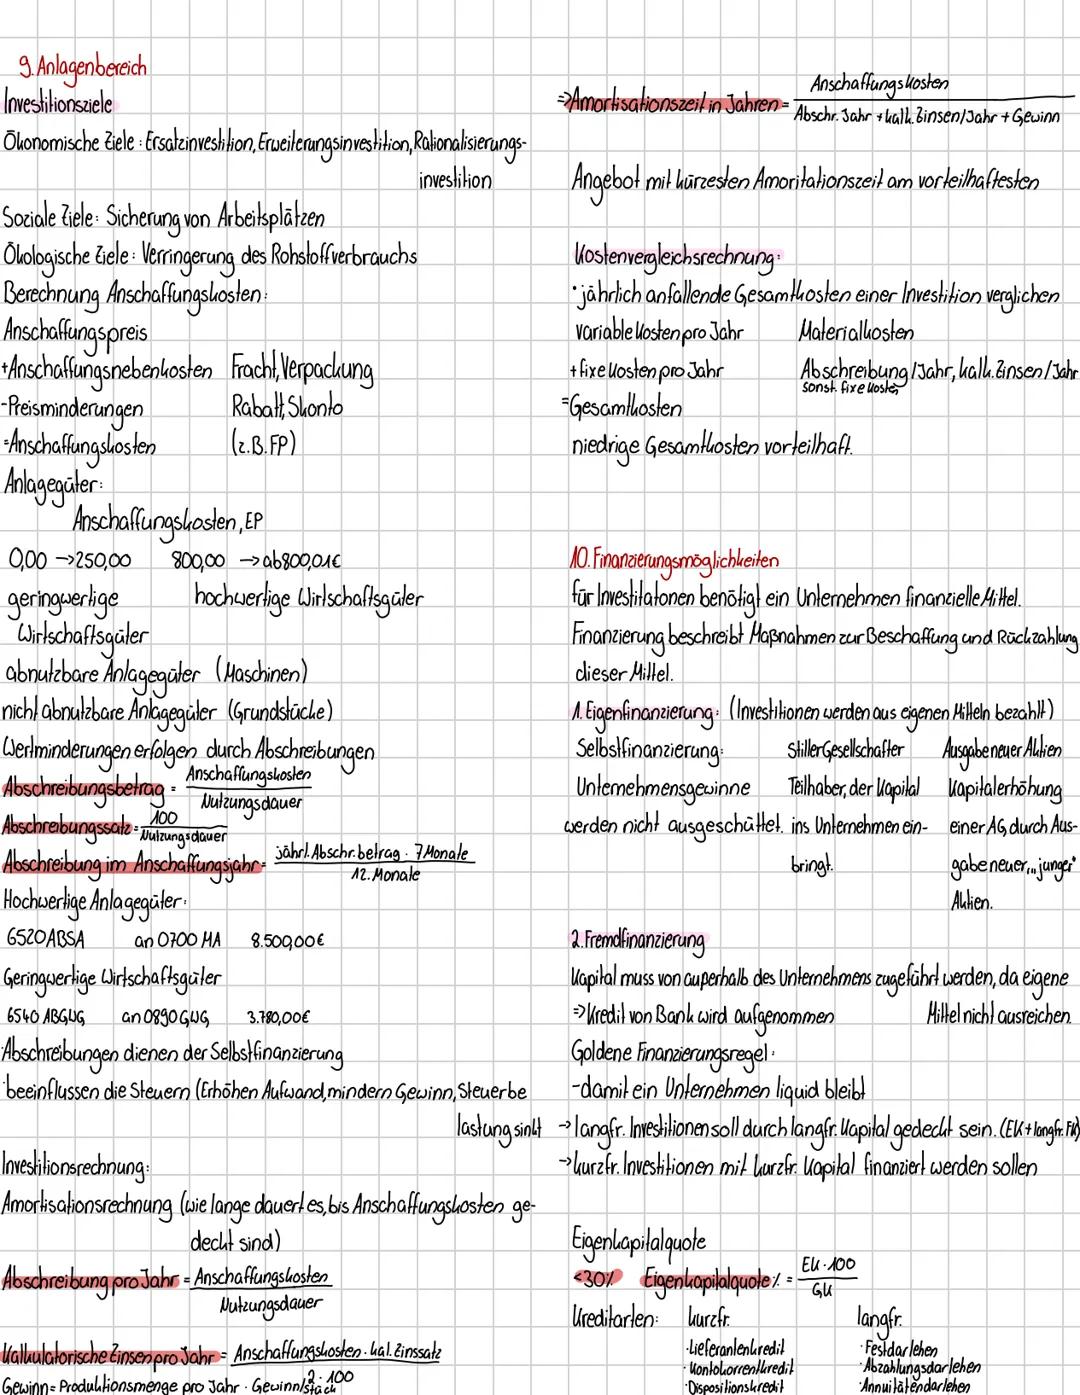 9. Anlagenbereich
Investitionsziele
Ökonomische Ziele: Ersatzinvestition, Erweiterungsinvestition, Rationalisierungs-
investition
Soziale Ziele: Sicherung von Arbeitsplätzen
Ökologische Ziele: Verringerung des Rohstoffverbrauchs
Berechnung Anschaffungskosten:
Anschaffungspreis
+Anschaffungsnebenkosten Fracht, Verpackung
-Preisminderungen Rabatt, Skonto
=Anschaffungskosten (z.B. FP)
Anlagegüter:
Anschaffungskosten, EP
0,00 → 250,00 800,00 → ab 800,01€
geringwertige hochwertige Wirtschaftsgüter
Wirtschaftsgüter
abnutzbare Anlagegüter (Maschinen)
nicht abnutzbare Anlagegüter (Grundstücke)
Wertminderungen erfolgen durch Abschreibungen
Abschreibungsbetrag = Anschaffungskosten
Nutzungsdauer
Abschreibungssatz = 100
Nutzungsdauer
Abschreibung im Anschaffungsjahr = jährl. Abschr. betrag · 7 Monate
12. Monate
Hochwertige Anlagegüter:
6520 ABSA an 0700 MA 8.500,00€
Geringwertige Wirtschaftsgüter
6540 ABGWG an 0890 GWG 3.780,00€
·Abschreibungen dienen der Selbstfinanzierung
·beeinflussen die Steuern (Erhöhen Aufwand, mindern Gewinn, Steuerbe
lastung sinkt
Investitionsrechnung:
Amortisationsrechnung (wie lange dauert es, bis Anschaffungskosten ge-
deckt sind)
Abschreibung pro Jahr = Anschaffungskosten
Nutzungsdauer
Kalkulatorische Zinsen pro Jahr = Anschaffungskosten · kal. Zinssatz
2 · 100
Gewinn = Produktionsmenge pro Jahr · Gewinn/Stück
⇒ Amortisationszeit in Jahren = Anschaffungskosten
Abschr. Jahr + kalk. Zinsen/Jahr + Gewinn
Angebot mit kürzesten Amoritationszeit am vorteilhaftesten
Kostenvergleichsrechnung:
·jährlich anfallende Gesamtkosten einer Investition verglichen
variable Kosten pro Jahr Materialkosten
+ fixe Kosten pro Jahr Abschreibung/Jahr, kalk. Zinsen/Jahr
sonst. fixe Kosten
=Gesamtkosten
niedrige Gesamtkosten vorteilhaft.
10. Finanzierungsmöglichkeiten
für Investitatonen benötigt ein Unternehmen finanzielle Mittel.
Finanzierung beschreibt Maßnahmen zur Beschaffung und Rückzahlung
dieser Mittel.
1. Eigenfinanzierung: (Investitionen werden aus eigenen Mitteln bezahlt)
Selbstfinanzierung: Stiller Gesellschafter Ausgabe neuer Aktien
Unternehmensgewinne Teilhaber, der Kapital Kapitalerhöhung
werden nicht ausgeschüttet. ins Unternehmen ein- einer AG, durch Aus-
bringt. gabe neuer, „junger"
Aktien.
2. Fremdfinanzierung
Kapital muss von außerhalb des Unternehmens zugeführt werden, da eigene
⇒ Kredit von Bank wird aufgenommen Mittel nicht ausreichen.
Goldene Finanzierungsregel:
-damit ein Unternehmen liquid bleibt
→ langfr. Investitionen soll durch langfr. Kapital gedeckt sein. (EK + langfr. FK)
→ kurzfr. Investitionen mit kurzfr. Kapital finanziert werden sollen
Eigenkapitalquote
<30% Eigenkapitalquote % = EK · 100
GK
Kreditarten: kurzfr. langfr.
·Lieferantenkredit ·Festdarlehen
·Kontokorrentkredit ·Abzahlungsdarlehen
·Dispositionskredit ·Annuitätendarlehen